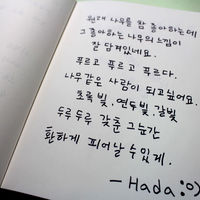 원래 나무를 참 좋아하는데
그 좋아하는 나무의 느낌이
잘 담겨있네요.
푸르고 푸르고 푸르다.
나무같은 사람이 되고싶어요.
초록빛, 연두빛, 갈빛
두루두루 갖춘 그늘간
환하게 피어날 수 있게.
- Hada :o)